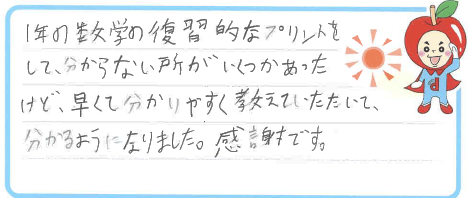 1年の数学の復習的なプリントを
して、分からない所がいくつかあった
けど、早くて分かりやすく教えていただいて、
分かるようになりました。感謝です。